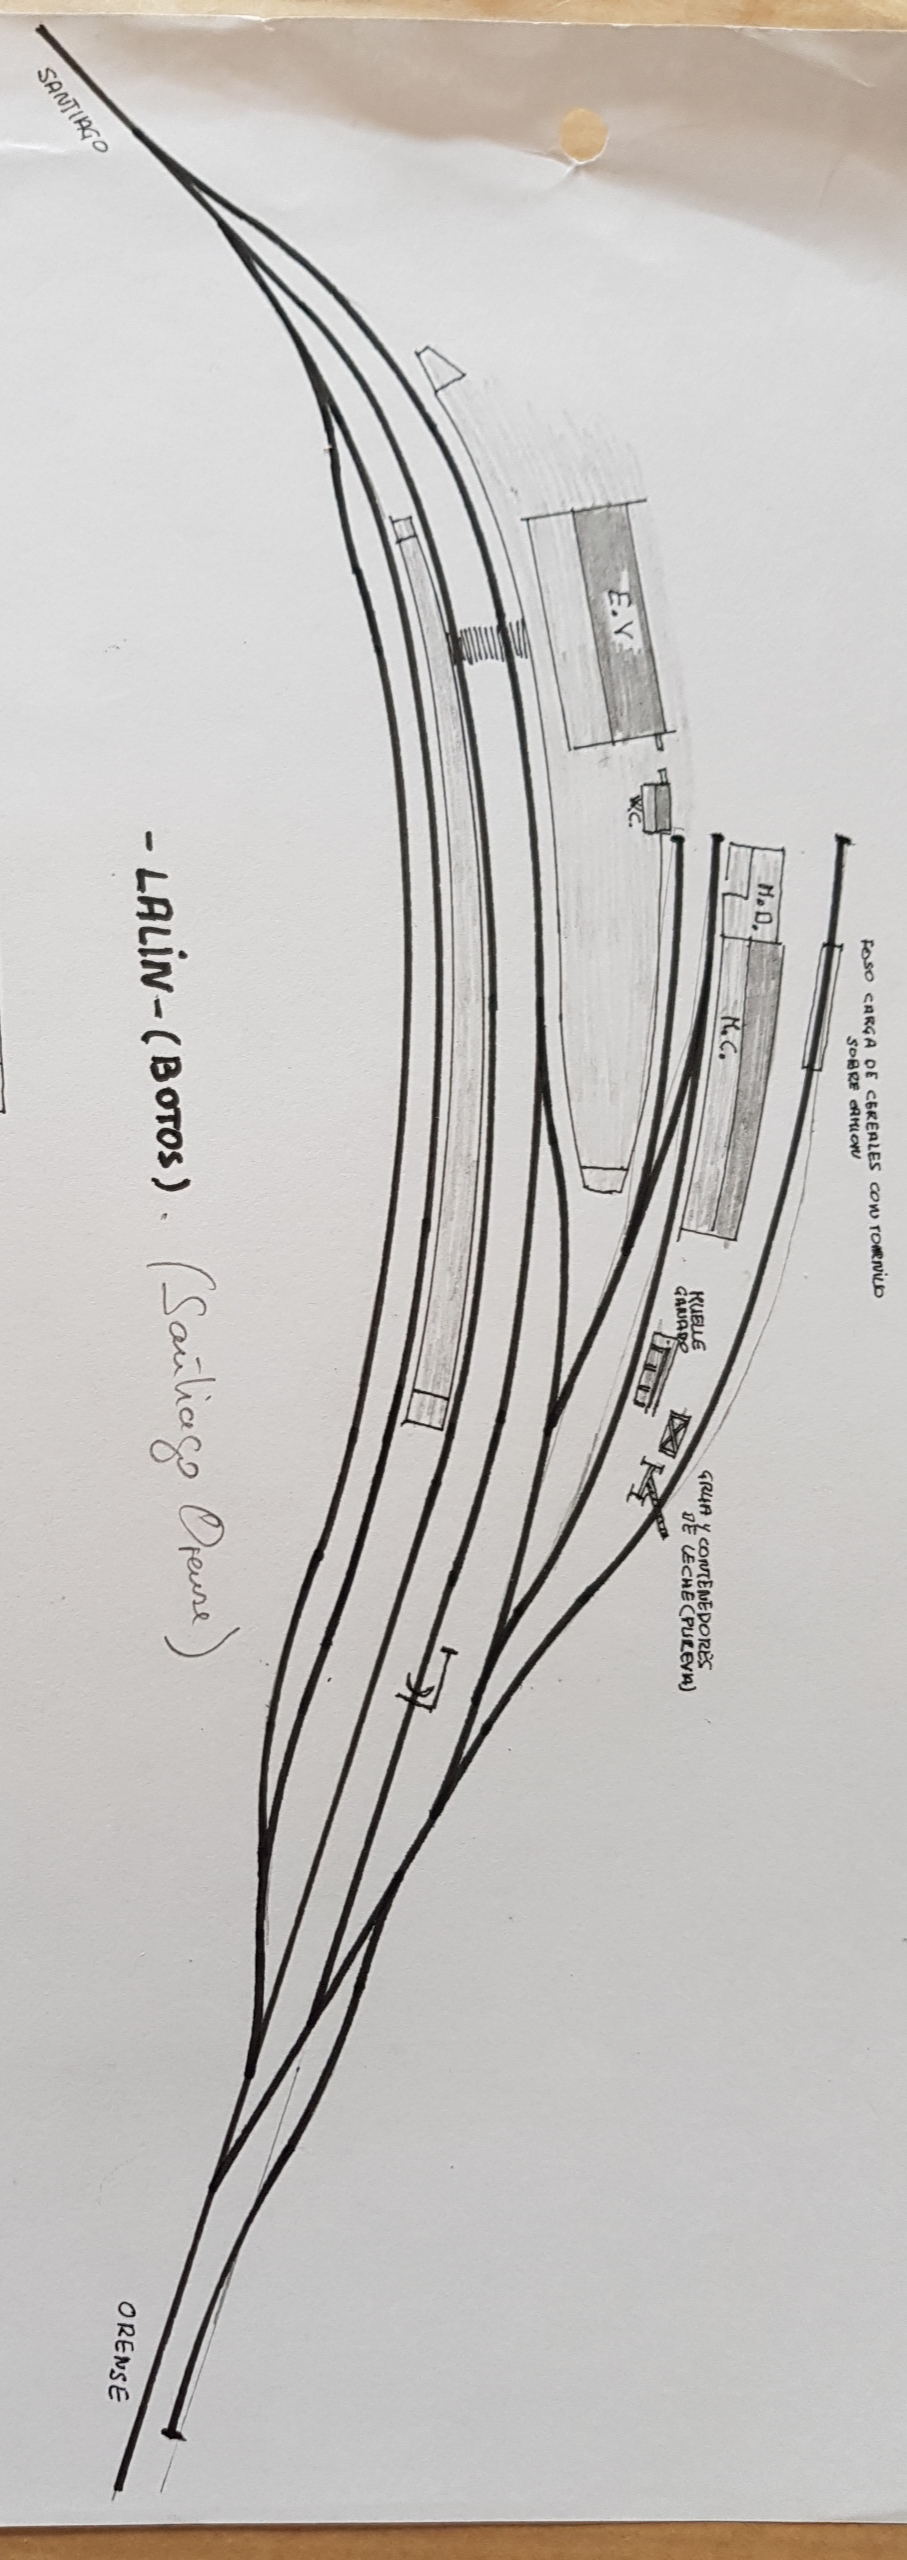 SANTIAGO
E.V.
W.C.
M.D.
M.C.
FOSO CARGA DE CEREALES CON TORNILLO
SOBRE CAMION
MUELLE
GANADO
GRUA Y CONTENEDORES
DE LECHE (PULEVA)
ORENSE
- LALÍN - (BOTOS). (Santiago Orense)